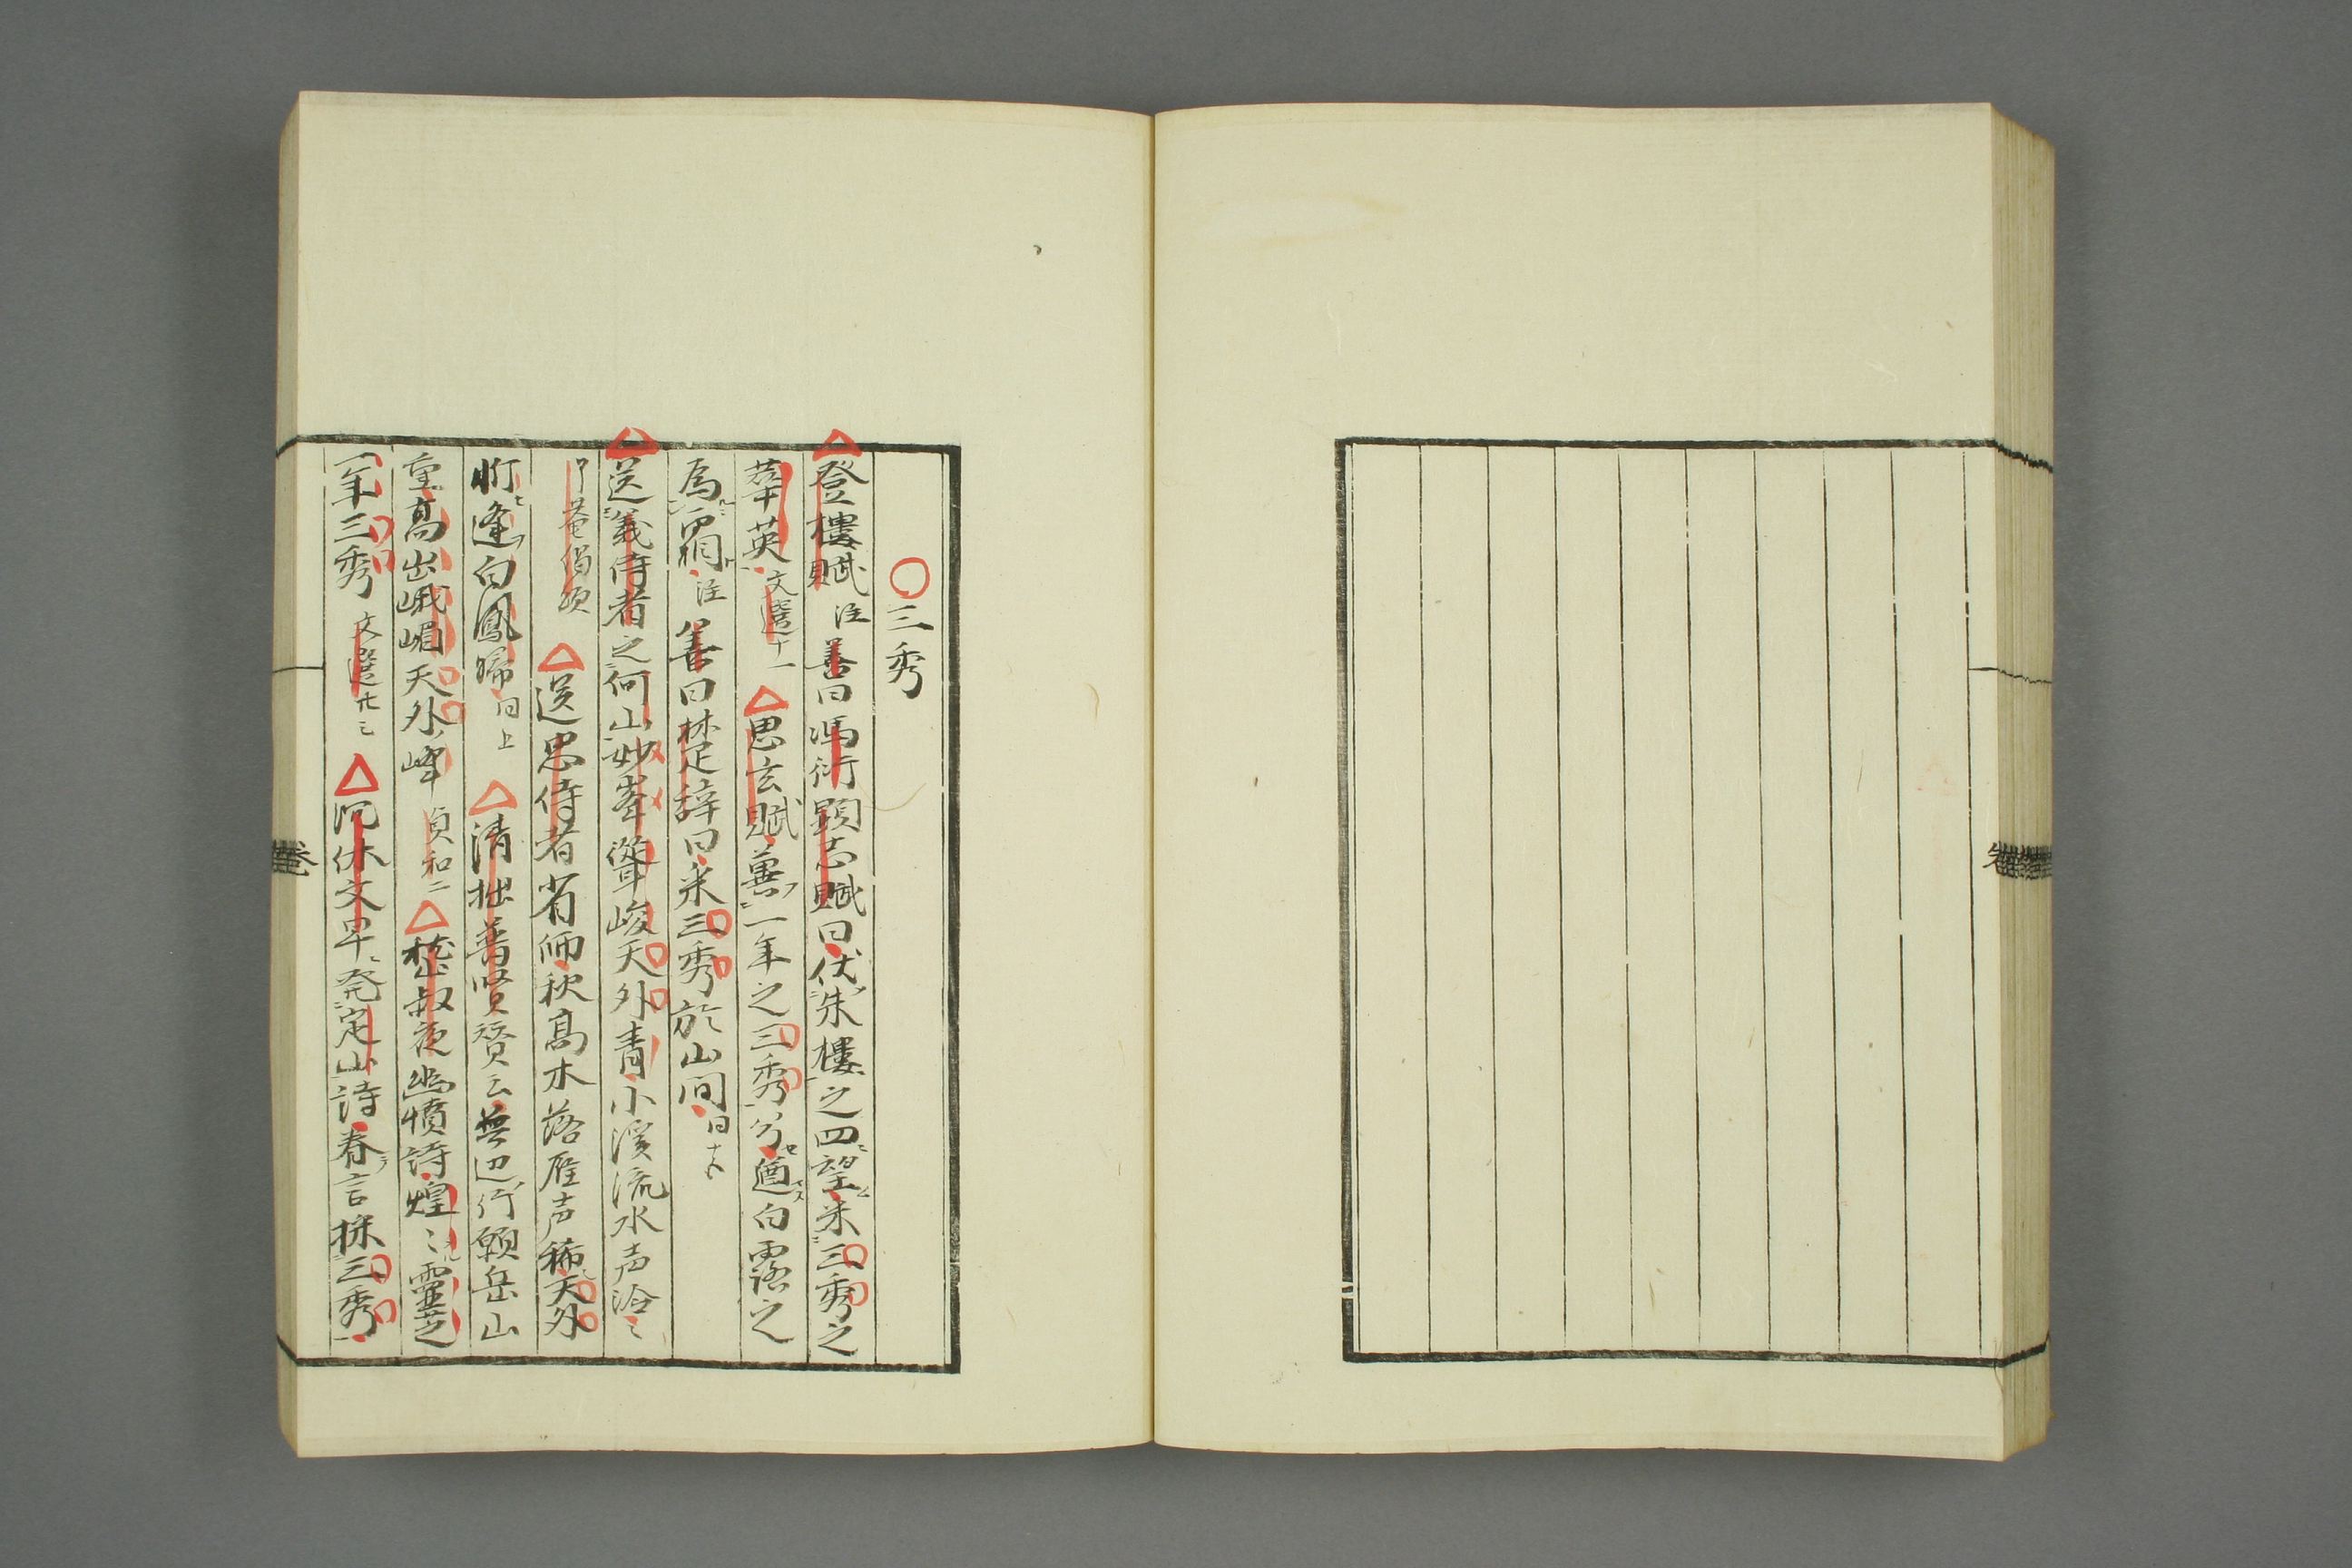 三秀
登樓賦 注 善曰馮衍顕志賦曰伏朱樓之四望采三秀之
華英 文選十一 思玄賦 蕢一年之三秀兮遒白露之
為霜 注 善曰楚辞曰采三秀於山間 同十五
送義侍者之何山妙峯聳峻天外青小溪流水声泠〻
了菴偈頌 送思侍者省師秋高木落雁声稀天外
逢白鳳歸 同上 清拙普賢賛云無辺行願岳山
重高出峨嵋天外峰 貞和二 嵇叔夜幽憤詩煌〻霊芝
一年三秀 文選廿三 沈休文早発定山詩眷言採三秀
卷
卷